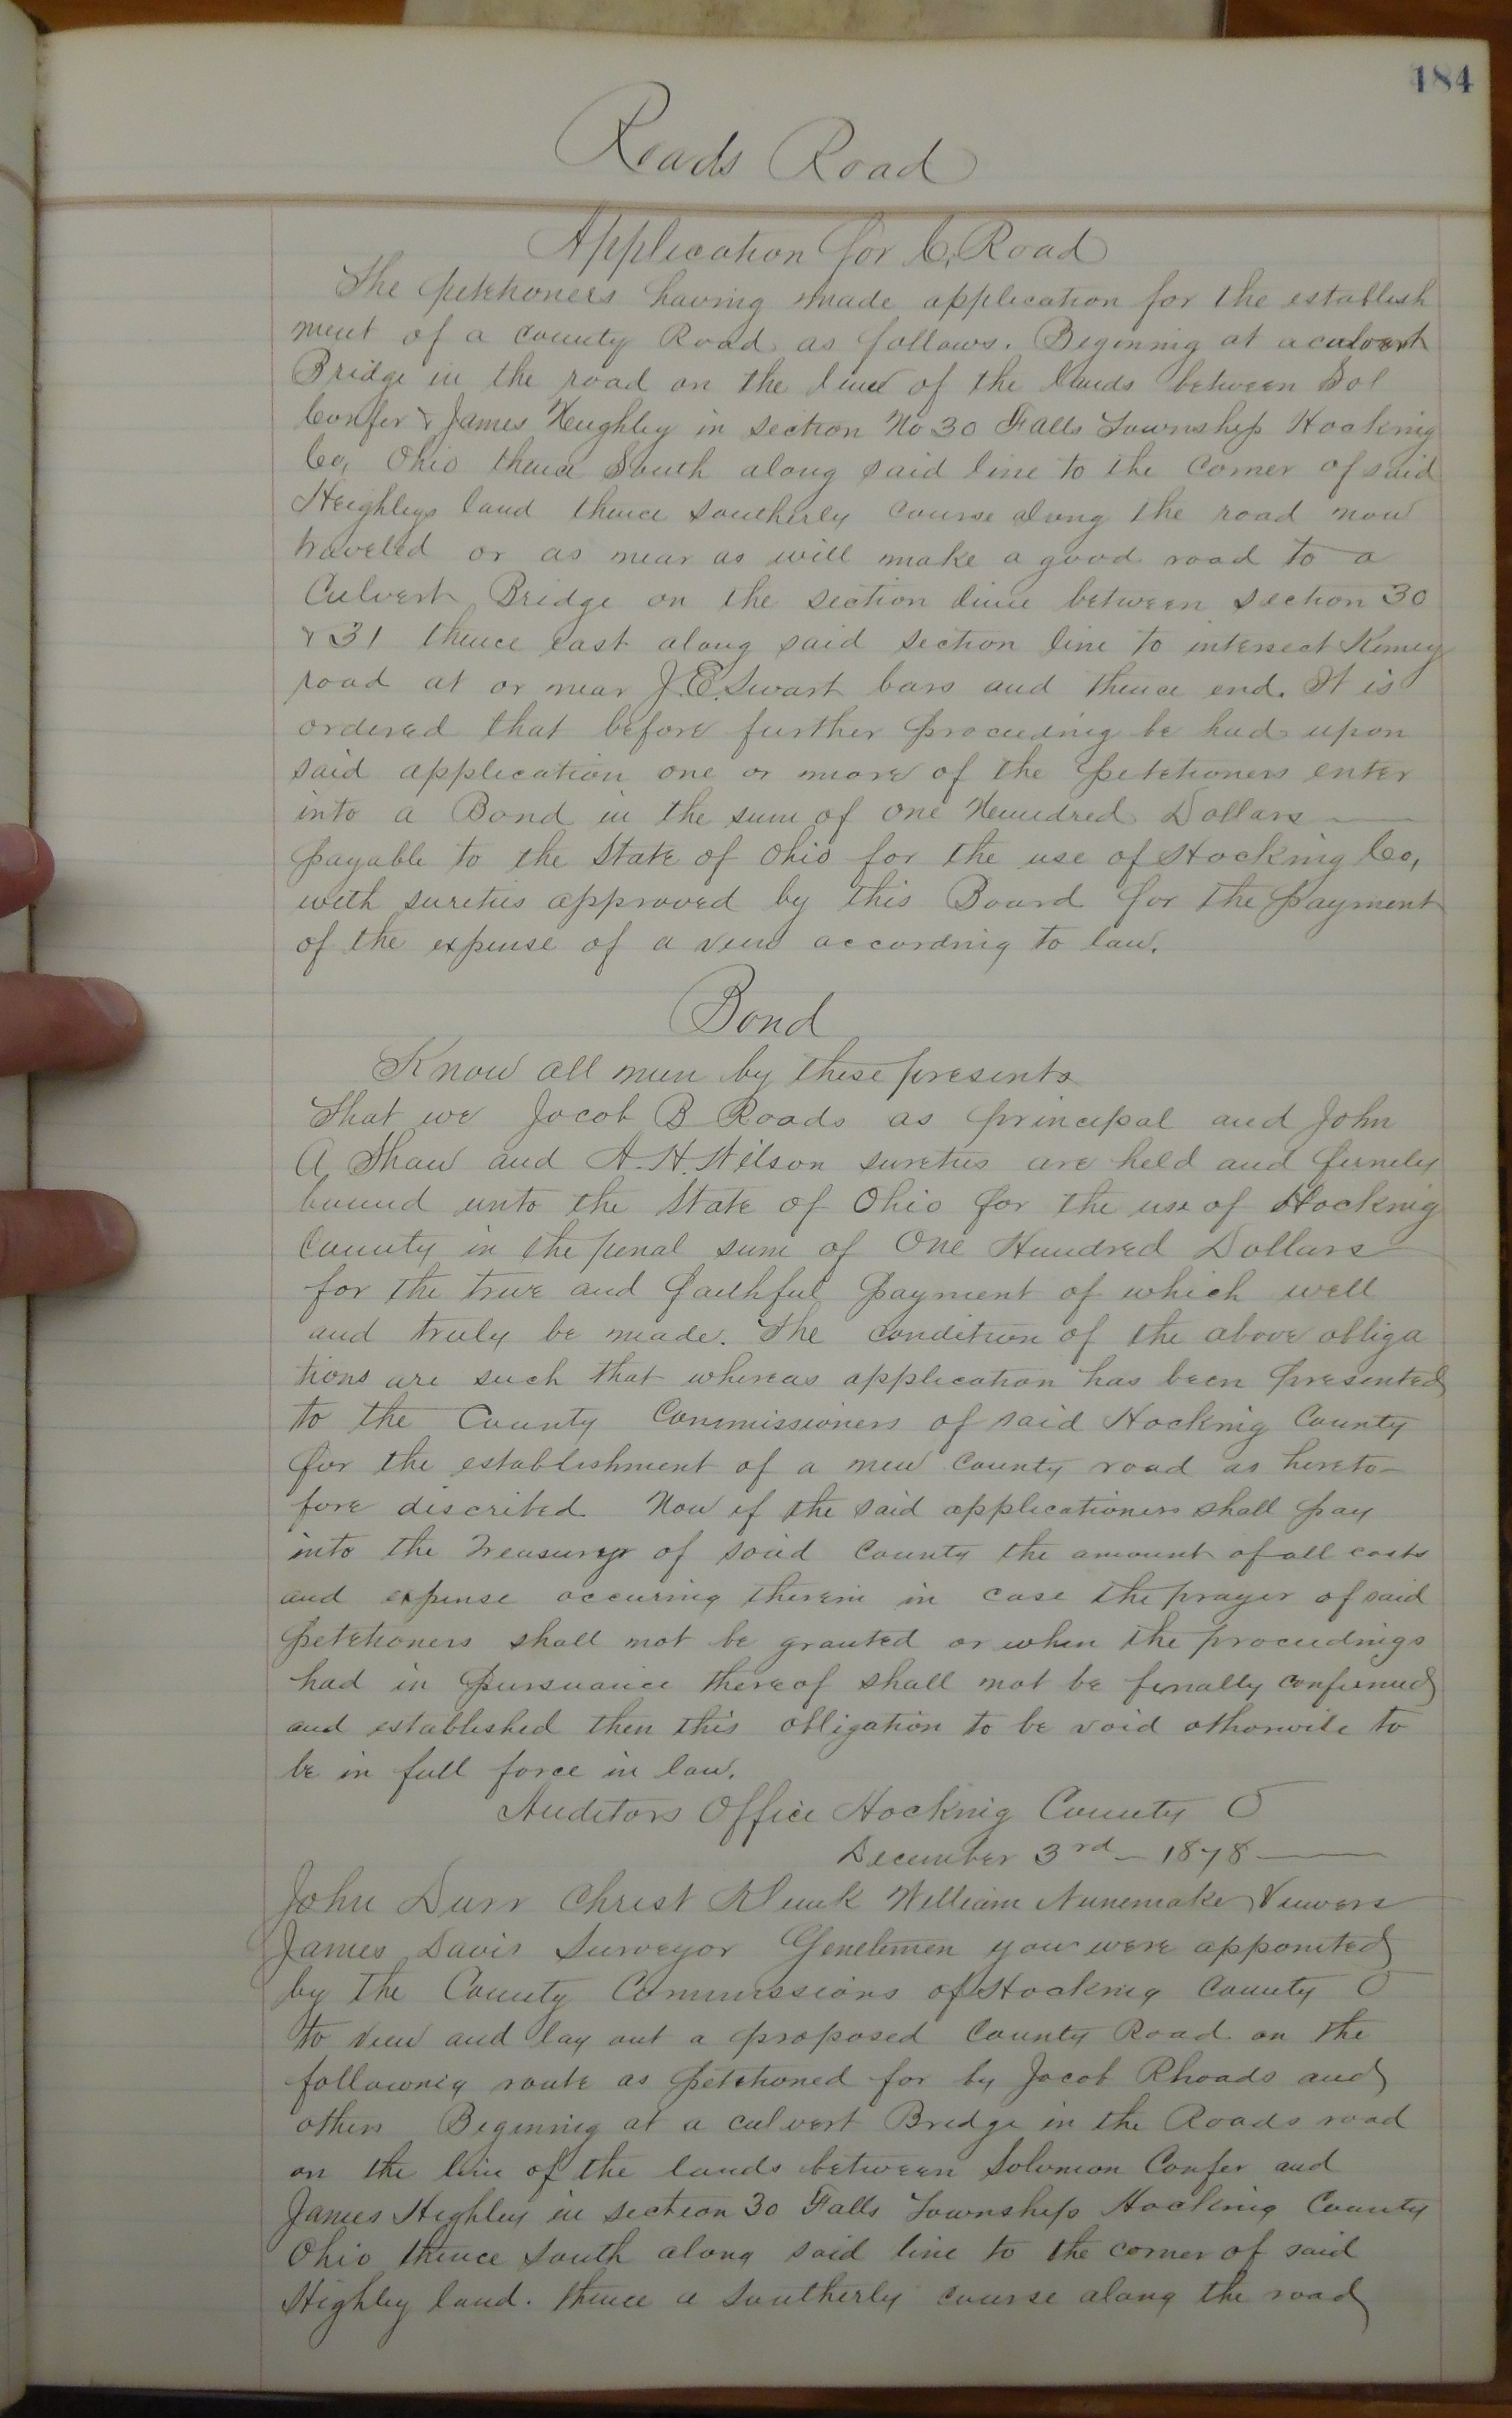 184
Roads Road
Application for C. Road
The petitioners having made application for the establish
ment of a county Road as follows. Beginning at a culvert
Bridge in the road on the line of the lands between Sol
Confer & James Heighley in section No 30 Falls Township Hocking
Co, Ohio thence South along said line to the Corner of said
Heighleys land thence southerly course along the road now
traveled or as near as will make a good road to a
Culvert Bridge on the section line between section 30
& 31 thence east along said section line to intersect
road at or near J. E. Swart bars and thence end. It is
ordered that before further proceeding be had upon
said application one or more of the petetioners enter
into a Bond in the sum of one Hundred Dollars
payable to the State of Ohio for the use of Hocking Co,
with sureties approved by this Board for the payment
of the expense of a view according to law.
Bond
Know all men by these presents
That we Jacob B Roads as principal and John
A. Shaw and A. H. Wilson sureties are held and firmly
bound unto the State of Ohio for the use of Hocking
County in the penal sum of One Hundred Dollars
for the true and faithful payment of which well
and truly be made. The condition of the above obliga
tions are such that whereas application has been presented
to the County Commissioners of said Hocking County
for the establishment of a new County road as hereto-
fore discribed Now if the said applicationers shall pay
into the Treasury of said County the amount of all costs
and expense occuring therein in case the prayer of said
petetioners shall not be granted or when the proceedings
had in pursuance thereof shall not be finally confirmed
and established then this obligation to be void otherwise to
be in full force in law.
Auditors Office Hocking County O
December 3rd - 1878
John Durr Christ William Nunemaker Viewers
James Davis Surveyor Genelemen you were appointed
by the County Commissions of Hocking County O
to view and lay out a proposed County Road on the
following route as petetioned for by Jacob Rhoads and
others Beginnig at a culvert Bridge in the Roads road
on the line of the lands between Solomon Confer and
James Highley in section 30 Falls Township Hocking County
Ohio thence South along said line to the corner of said
Highley land. thence a Southerly course along the road